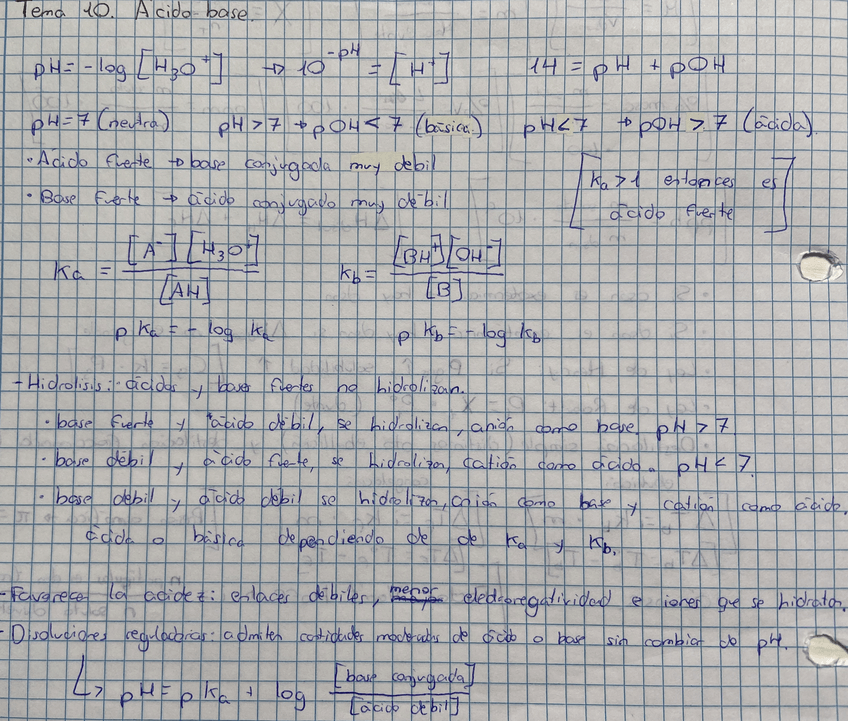 Tema 10. Ácido-base.
pH = -log [H₃O⁺] → 10^-pH = [H⁺] 14 = pH + pOH
pH=7 (neutra) pH>7 → pOH<7 (básica) pH<7 → pOH>7 (ácida).
· Ácido fuerte → base conjugada muy débil
· Base fuerte → ácido conjugado muy débil
[Ka>1 entonces es
ácido fuerte]
Ka = [A⁻][H₃O⁺] / [AH] Kb = [BH⁺][OH⁻] / [B]
pKa = -log Ka pKb = -log Kb
- Hidrolisis: ácidos y bases fuertes no hidrolizan.
· base fuerte y ácido débil, se hidrolizan, anión como base. pH > 7
· base débil y ácido fuerte, se hidrolizan, catión como ácido. pH < 7.
· base débil y ácido débil se hidrolizan, anión como base y catión como ácido.
ácida o básica dependiendo de de Ka y Kb.
- Favorece la acidez: enlaces débiles, menor electronegatividad e iones que se hidratan.
- Disoluciones reguladoras: admiten cantidades moderadas de ácido o base sin cambiar de pH.
↳ pH = pKa + log [base conjugada] / [ácido débil]